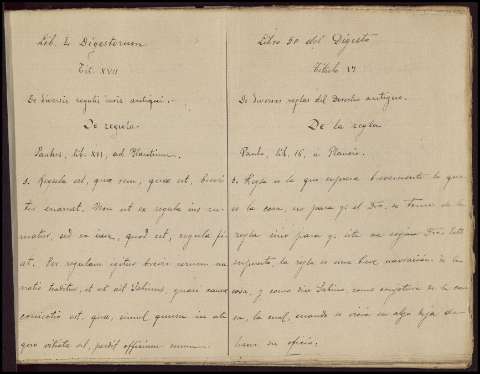 Lib. L Digestorum
Tit. XVII
De diversis regulis iuris antiqui.-
De regula.
Paulus, lib. XVI, ad Plautium.
1. Regula est, quæ rem, quæ est, brevi
ter enarrat. Non ut ex regula ius su-
matur, sed ex iure, quod est, regula fi-
at. Per regulam igitur brevis rerum na-
rratio traditur, et ut ait Sabinus, quasi causæ
coniectio est, quæ, simul quum in ali-
quo vitiata est, perdit officium suum.
Libro 50 del Digesto
Título 17
De diversas reglas del Derecho antiguo.
De la regla
Paulo, lib. 16, á Plaucio.
1. Regla es la que expresa brevemente lo que
es la cosa, no para q. el Dro. se tome de la
regla sino para q. esta se Dro. Este
supuesto, la regla es una breve narración de la
cosa, y como dice Sabino, como de la cau
sa, la cual, cuando se vicia en algo deja de
hacer su oficio.